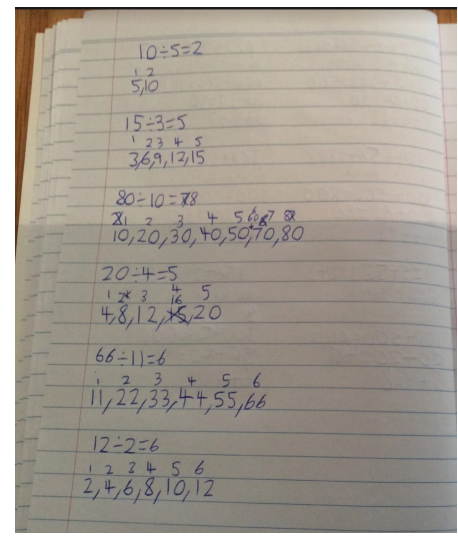 10÷5=2
1 2
5,10
15÷3=5
1 2 3 4 5
3,6,9,12,15
80÷10=8
1 2 3 4 5 6 7 8
10,20,30,40,50,60,70,80
20÷4=5
1 2 3 4 5
4,8,12,16,20
66÷11=6
1 2 3 4 5 6
11,22,33,44,55,66
12÷2=6
1 2 3 4 5 6
2,4,6,8,10,12